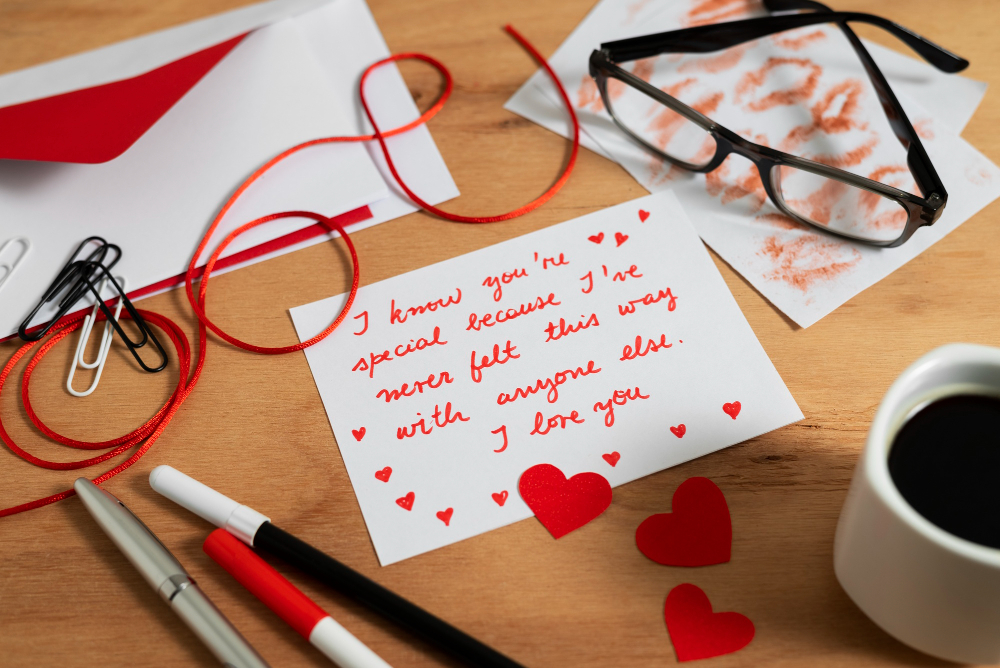 I know you're
special because I've
never felt this way
with anyone else.
I love you